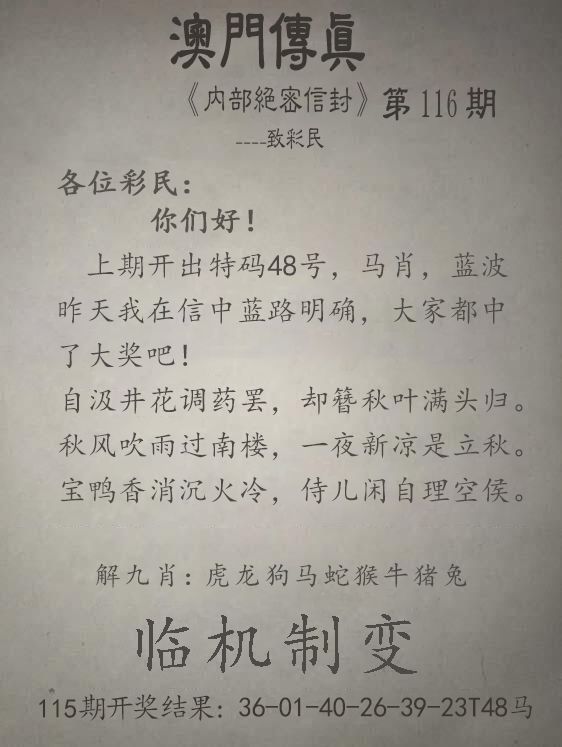 澳門傳眞
《内部絕密信封》第116期
----致彩民
各位彩民：
你们好！
上期开出特码48号，马肖，蓝波
昨天我在信中蓝路明确，大家都中
了大奖吧！
自汲井花调药罢，却簪秋叶满头归。
秋风吹雨过南楼，一夜新凉是立秋。
宝鸭香消沉火冷，侍儿闲自理空侯。
解九肖：虎龙狗马蛇猴牛猪兔
临机制变
115期开奖结果：36-01-40-26-39-23T48马